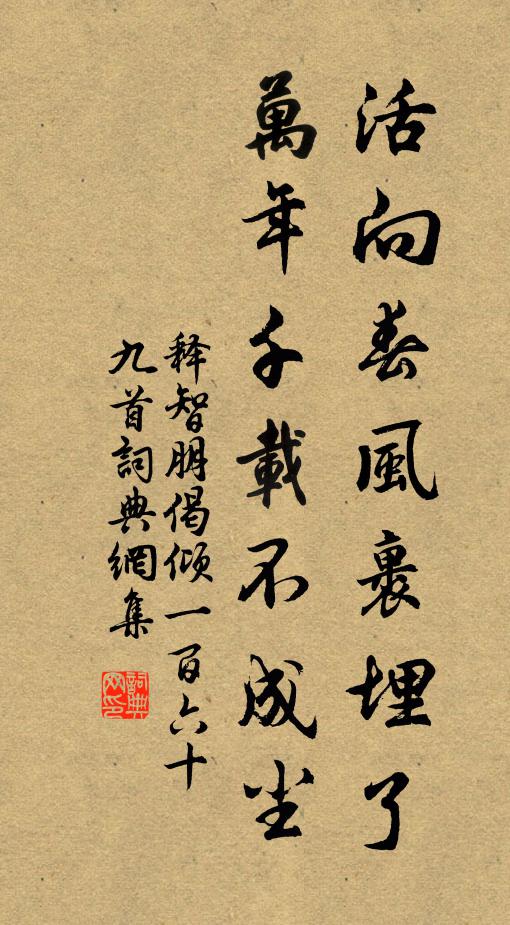 活向春風裏埋了
萬年千載不成尘
释智朋偈倾一百六十
九首詞典網集
詞典
网印